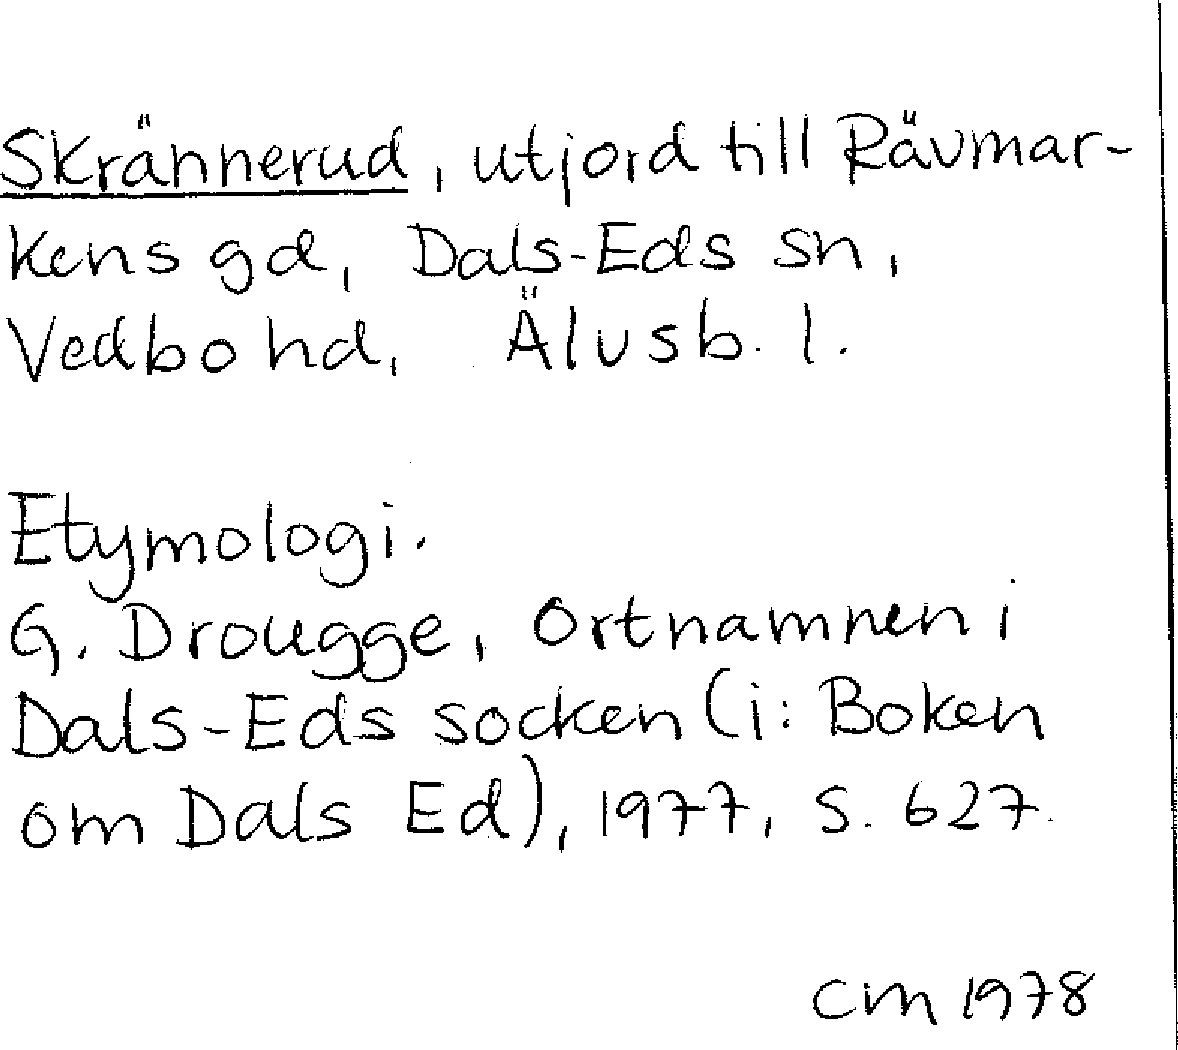 Skrännerud, utjord till Rävmar-
kens gd, Dals-Eds sn,
Vedbo hd, Älvsb. l.
Etymologi.
G. Drougge, Ortnamnen i
Dals-Eds socken (i: Boken
om Dals Ed), 1977, s. 627.
CM 1978